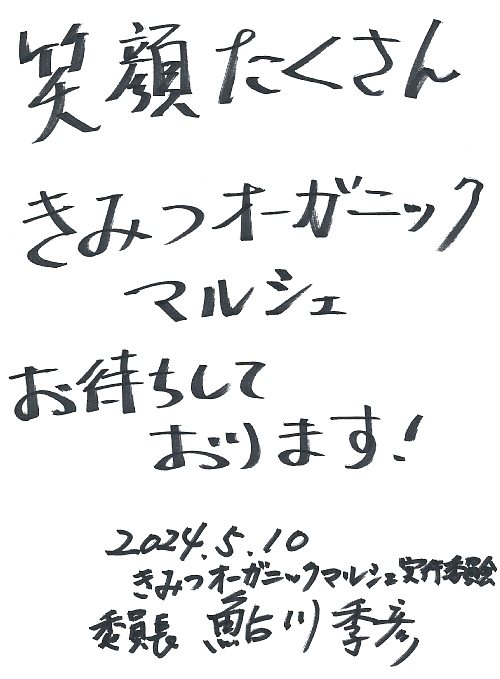 笑顔たくさん
きみつオーガニック
マルシェ
お待ちして
おります!
2024.5.10
きみつオーガニックマルシェ実行委員会
委員長 鮎川季彦